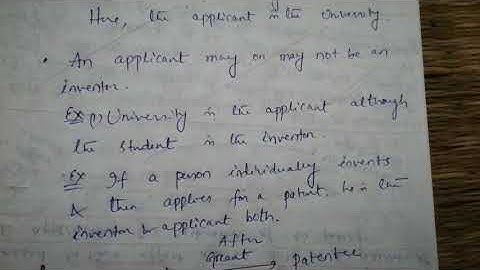 Here, the applicant is the University.
• An applicant may or may not be an
inventor.
Ex (1) University is the applicant although
the student is the inventor.
Ex If a person individually invents
& then applies for a patent, he is the
inventor & applicant both.
After
grant
patentee